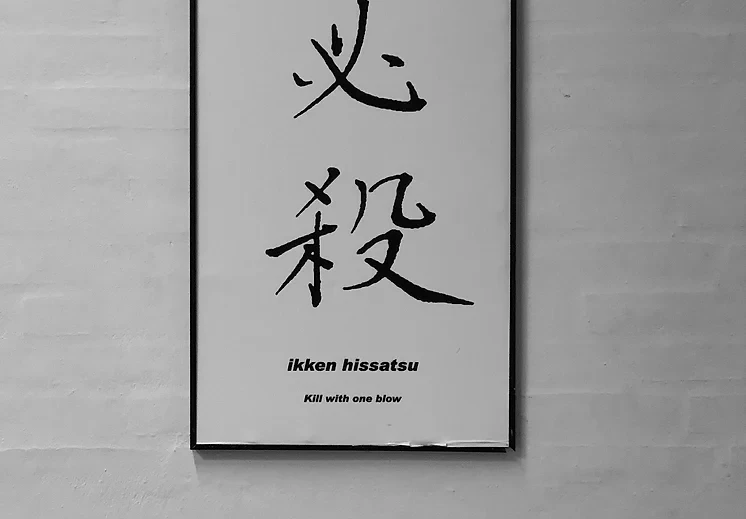 必
殺
ikken hissatsu
Kill with one blow